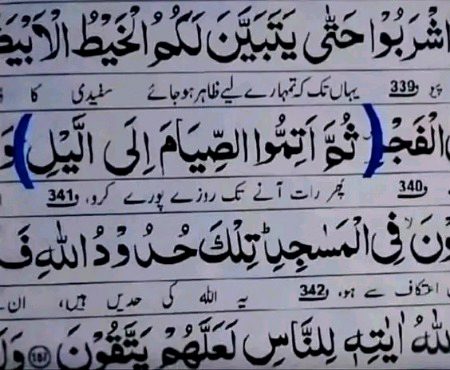 اشْرَبُوْا حَتّٰى يَتَبَيَّنَ لَكُمُ الْخَيْطُ الْاَبْيَضُ
پیو 339 یہاں تک کہ تمہارے لیے ظاہر ہو جائے سفیدی کا
الْفَجْرِ (ثُمَّ اَتِمُّوا الصِّيَامَ اِلَى الَّيْلِ) وَ
340 پھر رات آنے تک روزے پورے کرو، 341 و
وْنَ فِى الْمَسٰجِدِ ؕ تِلْكَ حُدُوْدُ اللّٰهِ فَ
اعتکاف سے ہو، 342 یہ اللہ کی حدیں ہیں، ان
اللّٰهُ اٰيٰتِهٖ لِلنَّاسِ لَعَلَّهُمْ يَتَّقُوْنَ ۱۸۷ وَلَ